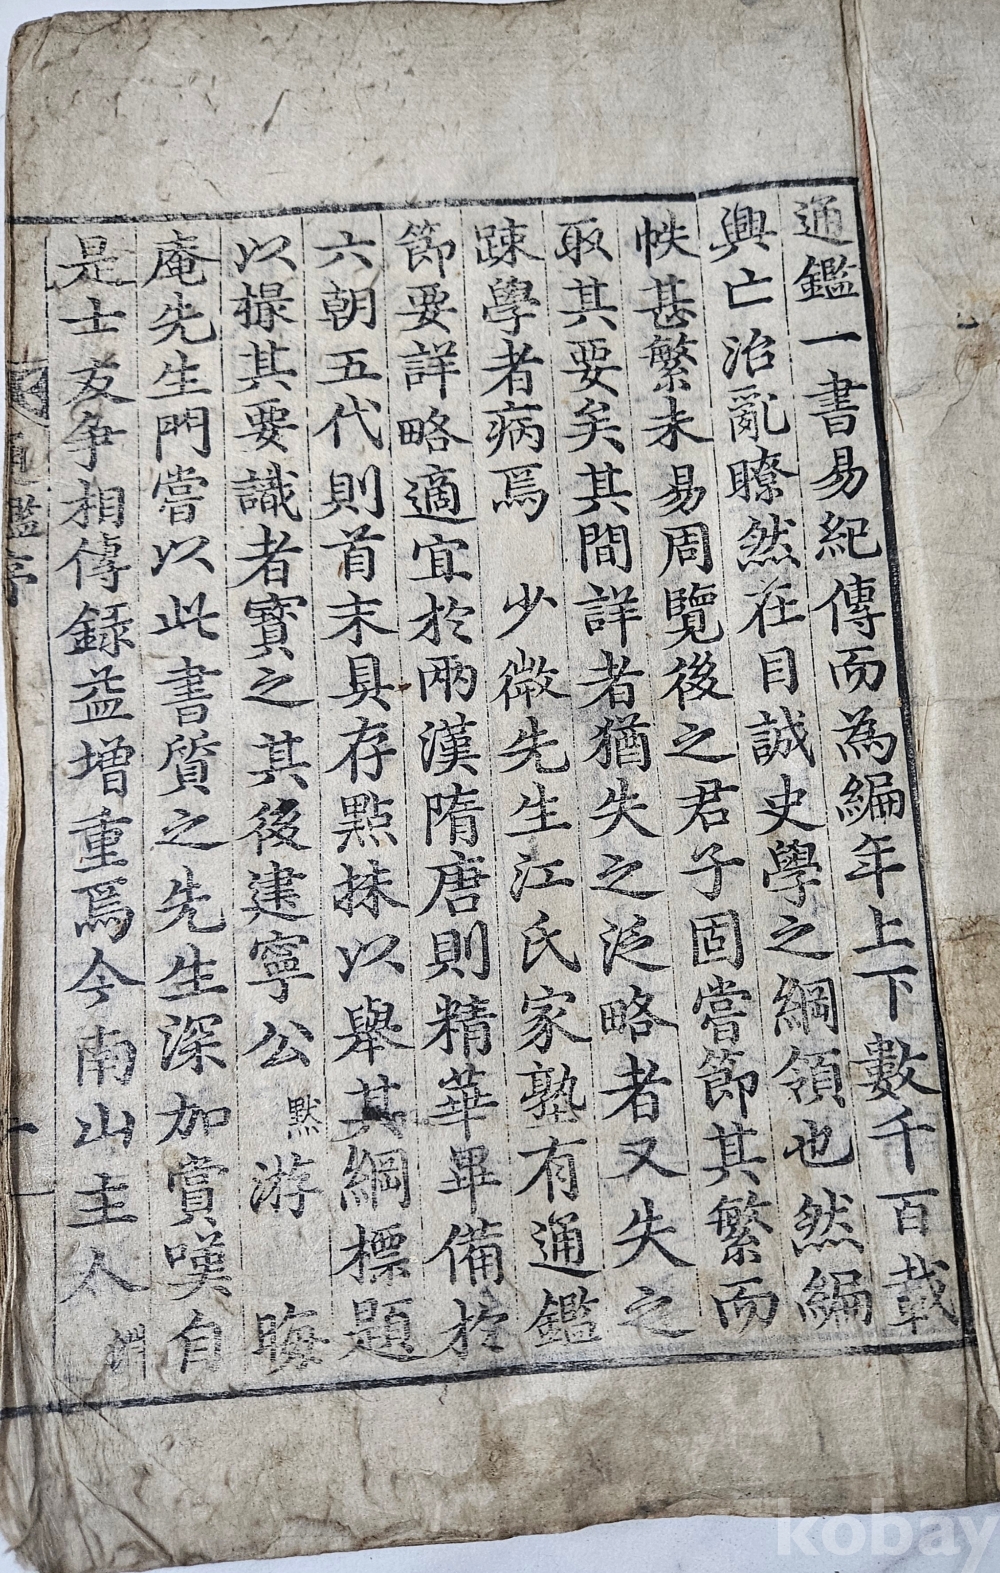 通鑑一書易紀傳而為編年上下數千百載
興亡治亂瞭然在目誠史學之綱領也然編
帙甚繁未易周覽後之君子固嘗節其繁而
取其要矣其間詳者猶失之泛略者又失之
踈學者病焉　少微先生江氏家塾有通鑑
節要詳略適宜於兩漢隋唐則精華畢備於
六朝五代則首末具存點抹以舉其綱標題
以撮其要識者寶之其後建寧公默游　晦
庵先生門嘗以此書質之先生深加賞嘆自
是士友争相傳録益增重焉今南山主人淵
通鑑序
一
kobay